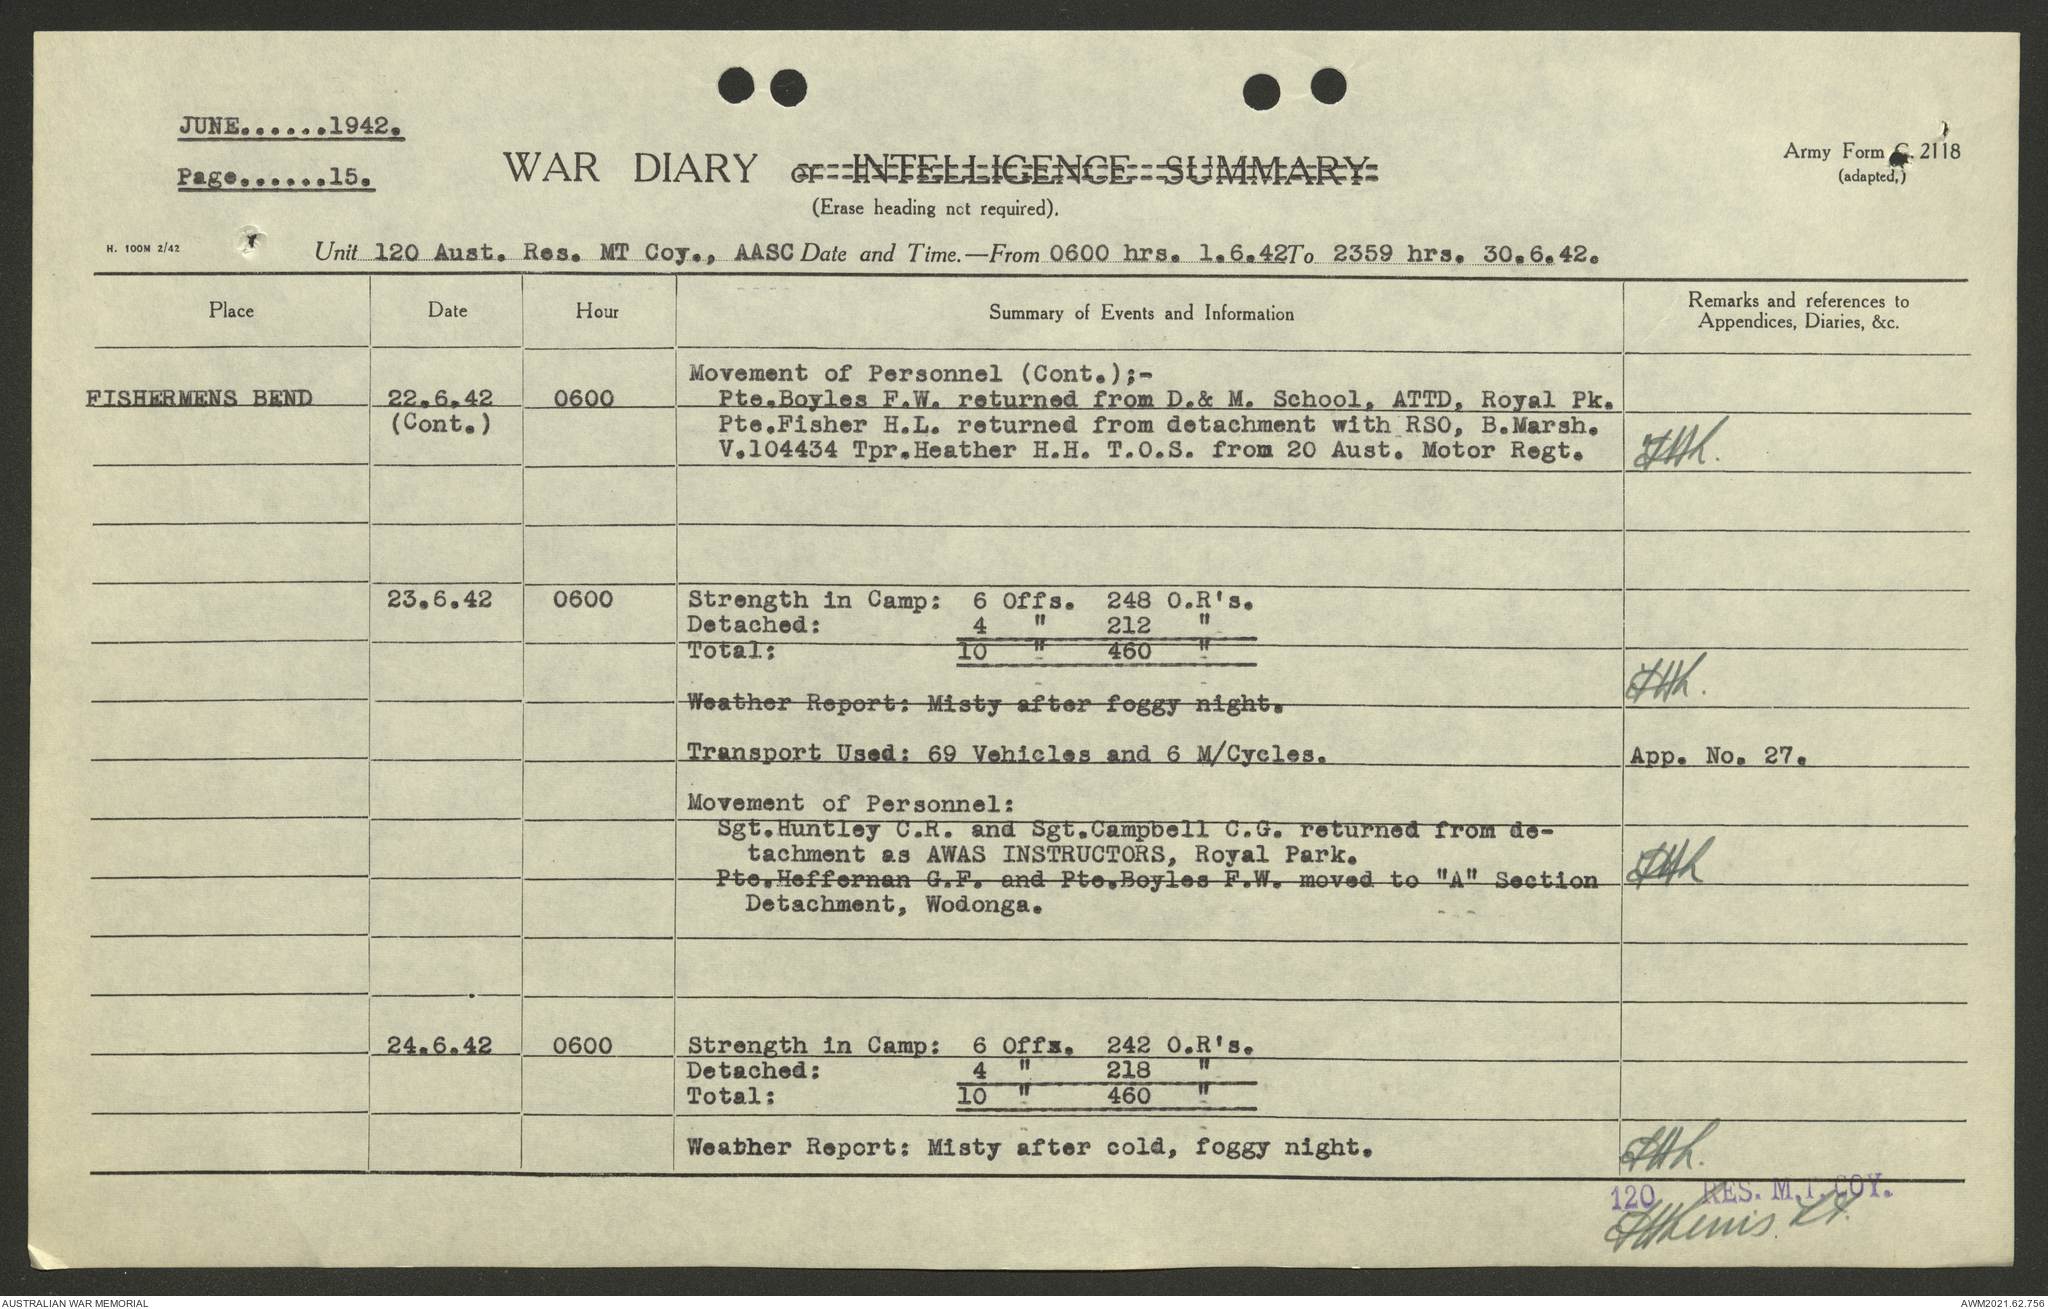 JUNE......1942.
Page......15.
WAR DIARY or INTELLIGENCE SUMMARY
(Erase heading not required).
Army Form C. 2118
(adapted,)
H. 100M 2/42
Unit 120 Aust. Res. MT Coy., AASC Date and Time.—From 0600 hrs. 1.6.42 To 2359 hrs. 30.6.42.
Place Date Hour Summary of Events and Information Remarks and references to
Appendices, Diaries, &c.
Movement of Personnel (Cont.);-
FISHERMENS BEND 22.6.42 0600 Pte.Boyles F.W. returned from D.& M. School, ATTD, Royal Pk.
(Cont.) Pte.Fisher H.L. returned from detachment with RSO, B.Marsh.
V.104434 Tpr.Heather H.H. T.O.S. from 20 Aust. Motor Regt.
23.6.42 0600 Strength in Camp: 6 Offs. 248 O.R's.
Detached: 4 " 212 "
Total: 10 " 460 "
Weather Report: Misty after foggy night.
Transport Used: 69 Vehicles and 6 M/Cycles. App. No. 27.
Movement of Personnel:
Sgt.Huntley C.R. and Sgt.Campbell C.G. returned from de-
tachment as AWAS INSTRUCTORS, Royal Park.
Pte.Heffernan G.F. and Pte.Boyles F.W. moved to "A" Section
Detachment, Wodonga.
24.6.42 0600 Strength in Camp: 6 Offs. 242 O.R's.
Detached: 4 " 218 "
Total: 10 " 460 "
Weather Report: Misty after cold, foggy night.
120 RES. M.T. COY.
AUSTRALIAN WAR MEMORIAL
AWM2021.62.756